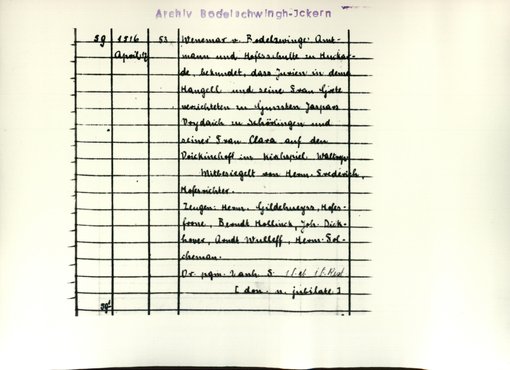 Archiv Bodelschwingh-Ickern
39 1516 53. Wenemar v. Bodelswinge Amt-
April 17 mann und Hofesschulte zu Huckar-
de, bekundet, dass Jurien in deme
Hangell und seine Frau Grete
verzichteten zu Gunsten Jaspars
Drydach zu Schöringen und
seiner Frau Clara auf den
Dickinshoff im Kirchspiel
Mitbesiegelt von Herm. Frederich,
Hofesrichter.
Zeugen: Herm. Gildehueyss, Hofes-
frone, Berndt Hollinck, Joh. Dick-
hover, Arndt Wulleff, Herm. Sol-
cheman.
Or. pgm. 2 anh. S.
[don. n. jubilate]
39